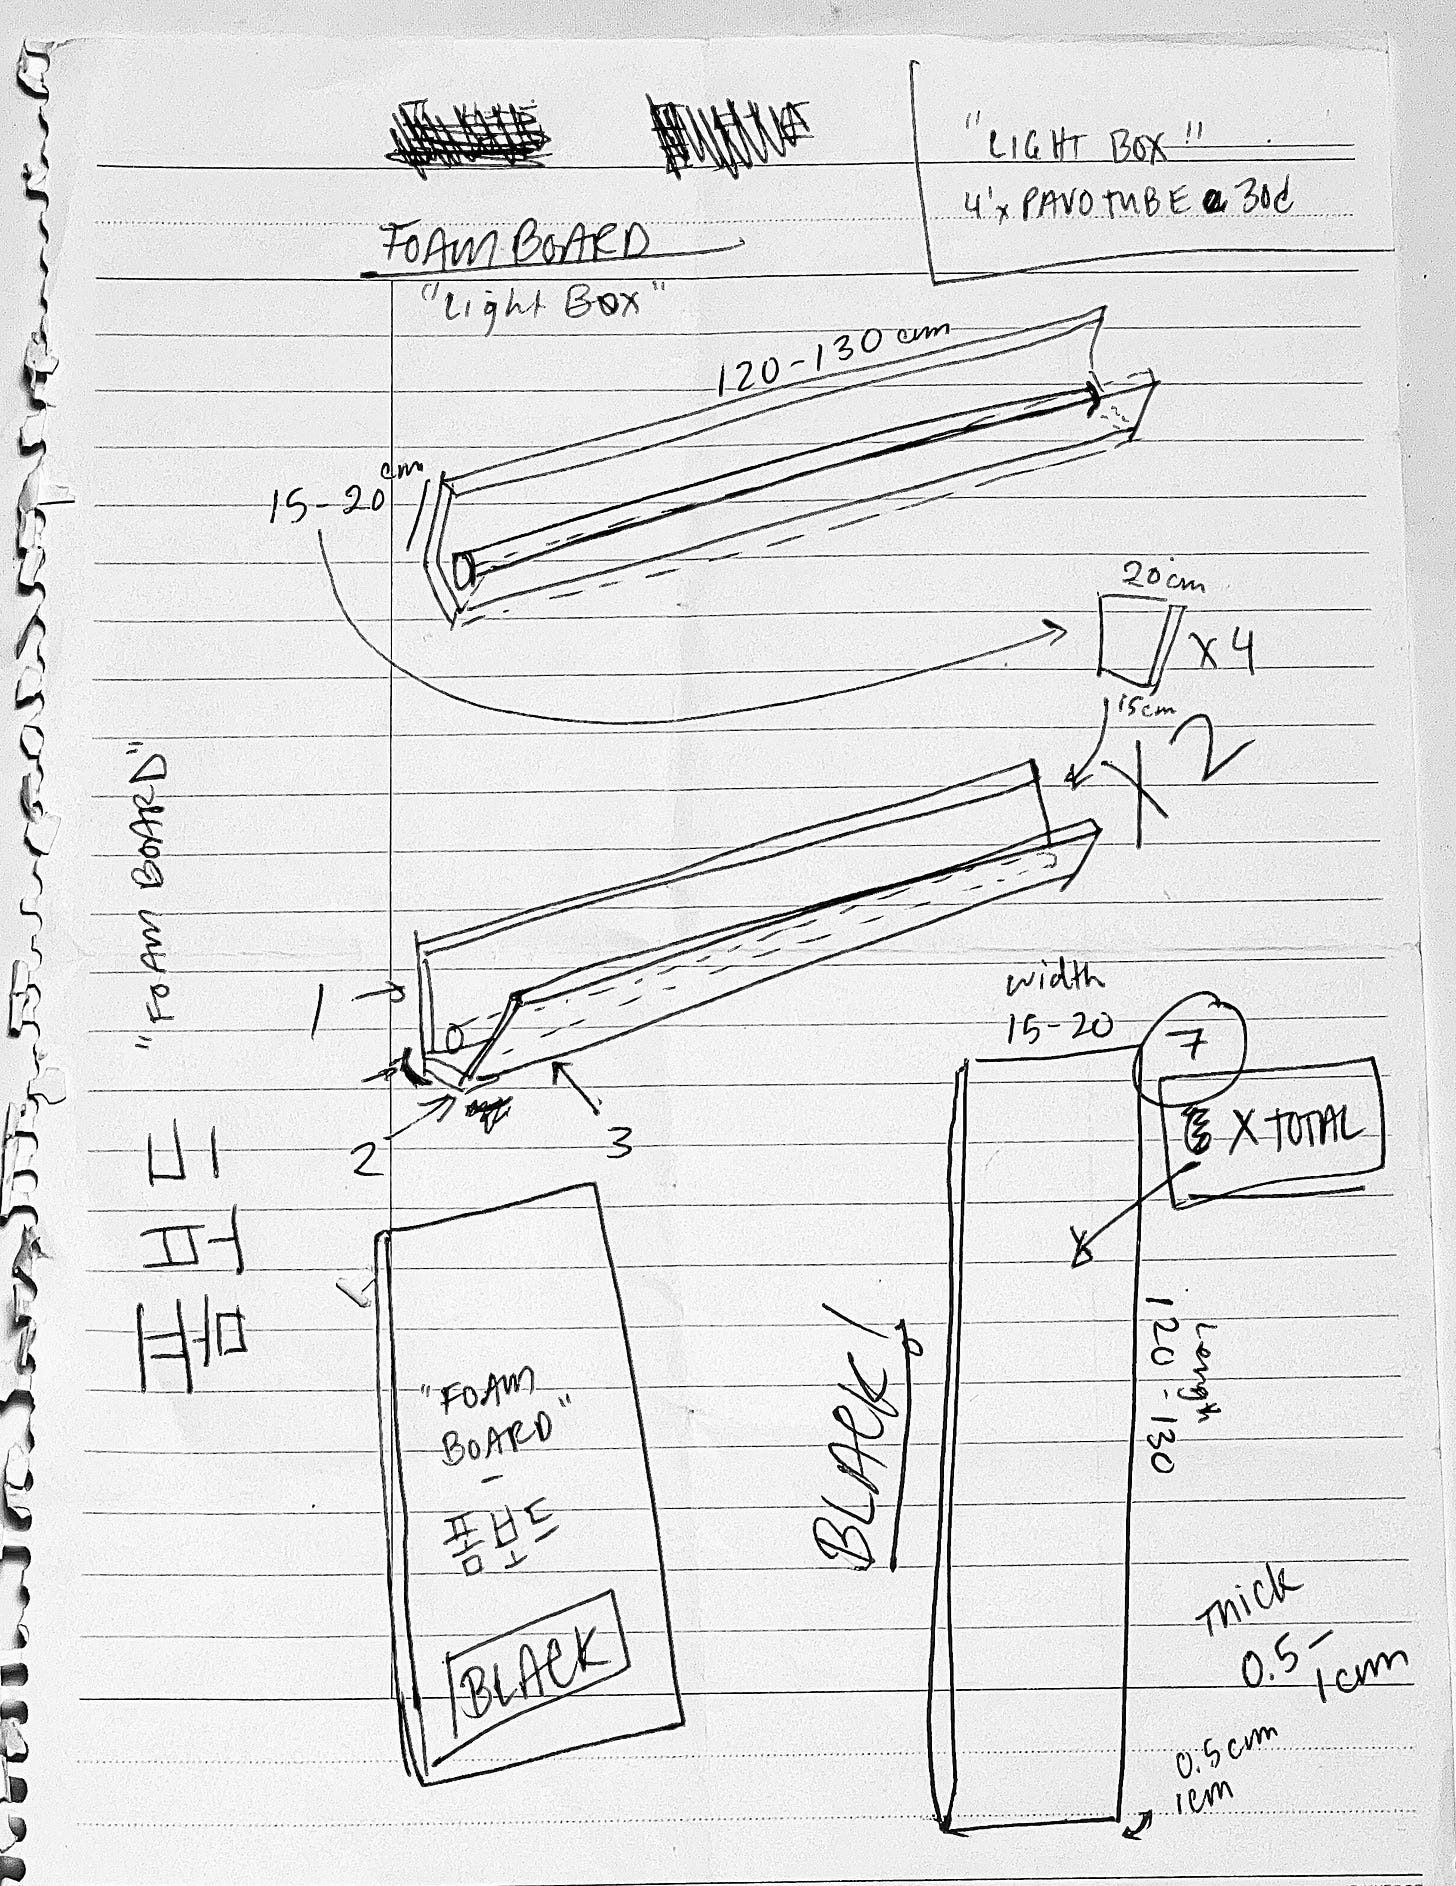 "LIGHT BOX"
4'x PAVOTUBE 30c
FOAM BOARD
"Light Box"
120-130 cm
15-20 cm
20cm
x 4
15cm
x 2
"FOAM BOARD"
폼보드
1
2
3
width
15-20
7
X TOTAL
Length
120-130
BLACK!
"FOAM
BOARD"
-
폼보드
BLACK
Thick
0.5-
1cm
0.5cm
1cm